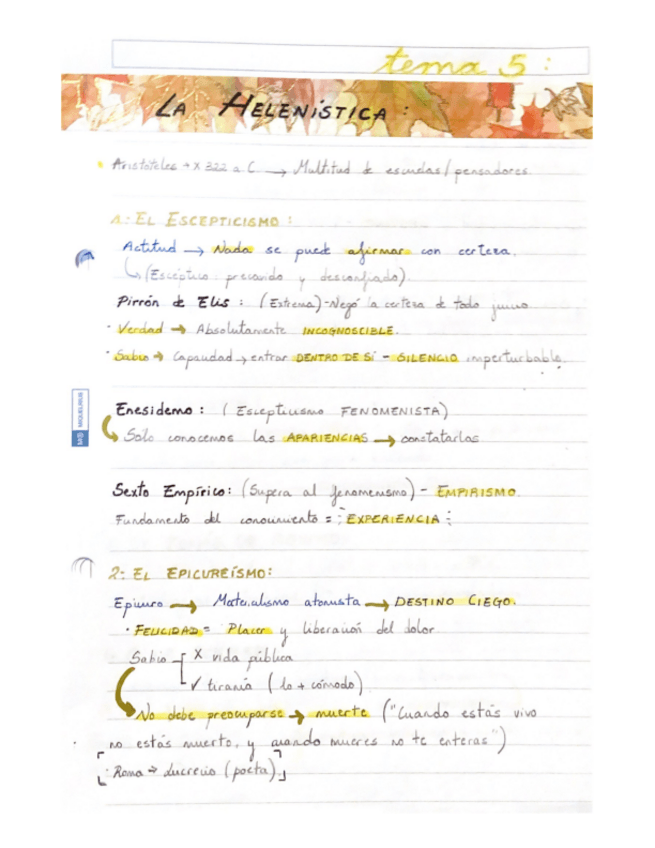 tema 5:
LA HELENÍSTICA:
• Aristóteles → X 322 a C → Multitud de escuelas/pensadores
1: EL ESCEPTICISMO:
Actitud → Nada se puede afirmar con certeza.
↳ (Escéptico precavido y desconfiado)
Pirrón de Elis: (Extrema) - Negó la certeza de todo juicio
· Verdad → Absolutamente INCOGNOSCIBLE.
· Sabio → Capacidad → entrar DENTRO DE SÍ - SILENCIO imperturbable.
Enesidemo: (Escepticismo FENOMENISTA)
Solo conocemos las APARIENCIAS → constatarlas
MIQUELRIUS
Sexto Empírico: (Supera al fenomenismo) - EMPIRISMO
Fundamento del conocimiento = EXPERIENCIA
2: EL EPICUREÍSMO:
Epicuro → Materialismo atomista → DESTINO CIEGO.
· FELICIDAD = Placer y liberación del dolor
Sabio X vida pública
✓ tiranía (lo + cómodo)
No debe preocuparse → muerte ("Cuando estás vivo
no estás muerto, y cuando mueres no te enteras")
Roma → Lucrecio (poeta)